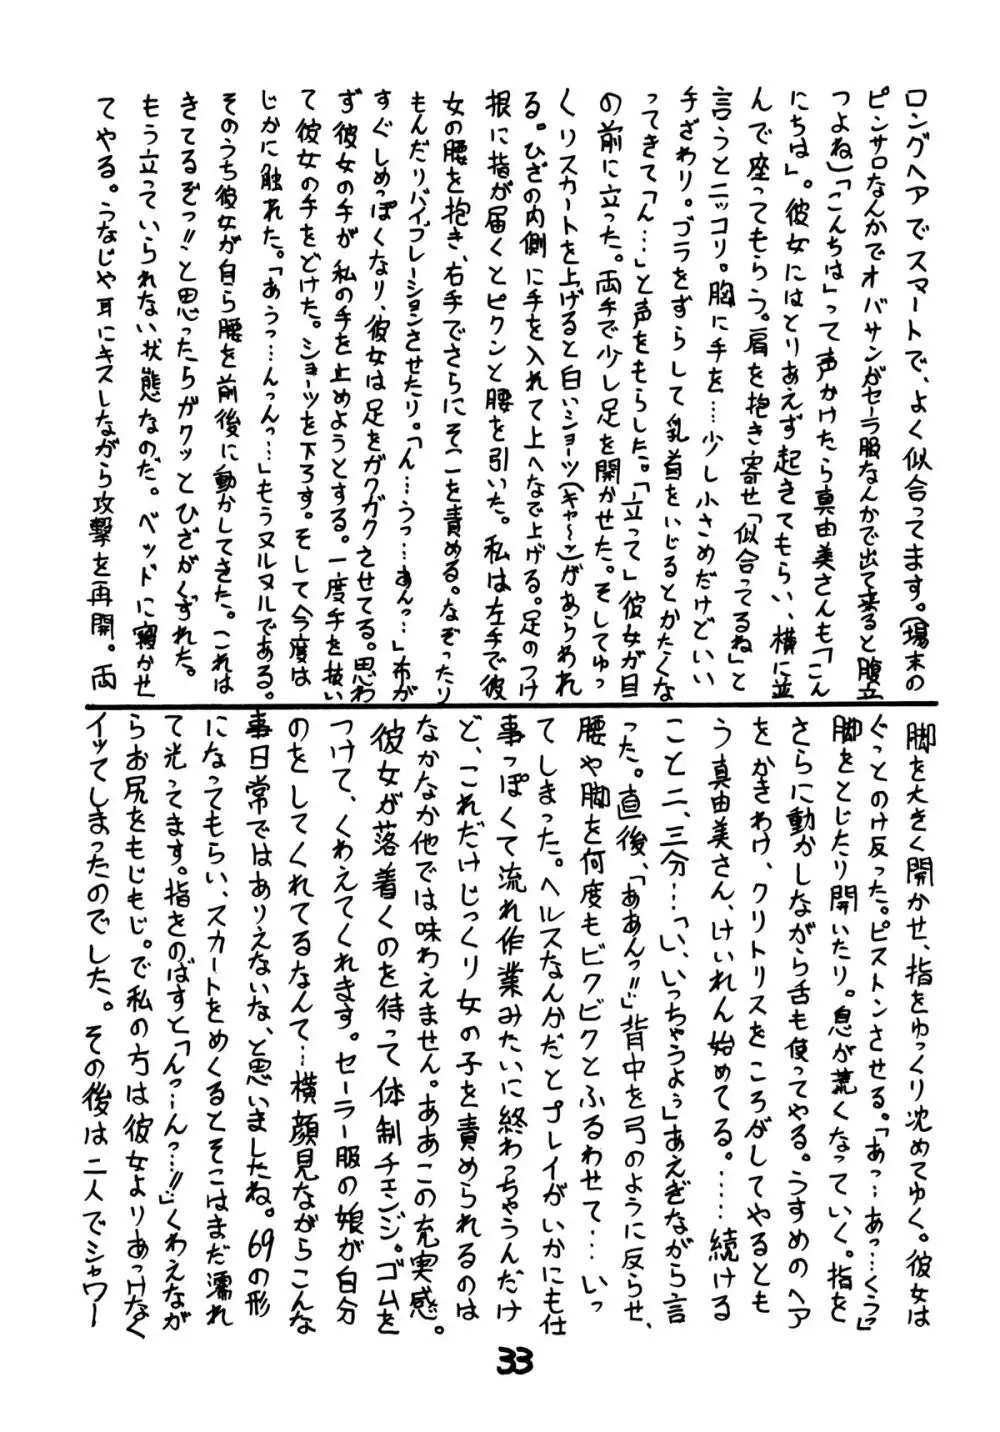 ロングヘアでスマートで、よく似合ってます。（場末の
ピンサロなんかでオバサンがセーラ服なんかで出て来ると腹立
つよね）「こんちは」って声かけたら真由美さんも「こん
にちは」。彼女にはとりあえず起きてもらい、横に並
んで座ってもらう。肩を抱き寄せ「似合ってるね」と
言うとニッコリ。胸に手を…少し小さめだけどいい
手ざわり。ブラをずらして乳首をいじるとかたくな
ってきて「ん…」と声をもらした。「立って」彼女が目
の前に立った。両手で少し足を開かせた。そしてゆっ
くりスカートを上げると白いショーツ（キャ〜ッ）があらわれ
る。ひざの内側に手を入れて上へなで上げる。足のつけ
根に指が届くとピクンと腰を引いた。私は左手で彼
女の腰を抱き、右手でさらにそこを責める。なぞったり
もんだりバイブレーションさせたり。「ん…うっ…あんっ…」布が
すぐしめっぽくなり、彼女は足をガクガクさせてる。思わ
ず彼女の手が私の手を止めようとする。一度手を抜い
て彼女の手をどけた。ショーツを下ろす。そして今度は
じかに触れた。「あうっ…んっんっ…」もうヌルヌルである。
そのうち彼女が自ら腰を前後に動かしてきた。これは
きてるぞっ!!と思ったらガクッとひざがくずれた。
もう立っていられない状態なのだ。ベッドに寝かせ
てやる。うなじや耳にキスしながら攻撃を再開。両
脚を大きく開かせ、指をゆっくり沈めてゆく。彼女は
ぐっとのけ反った。ピストンさせる。「あっ…あっ…くうっ」
脚をとじたり開いたり。息が荒くなっていく。指を
さらに動かしながら舌も使ってやる。うすめのヘア
をかきわけ、クリトリスをころがしてやるとも
う真由美さん、けいれん始めてる。……続ける
こと二、三分…「い、いっちゃうよぅ」あえぎながら言
った。直後、「ああんっ!!」背中を弓のように反らせ、
腰や脚を何度もビクビクとふるわせて…いっ
てしまった。ヘルスなんかだとプレイがいかにも仕
事っぽくて流れ作業みたいに終わっちゃうんだけ
ど、これだけじっくり女の子を責められるのは
なかなか他では味わえません。ああこの充実感。
彼女が落着くのを待って体制チェンジ。ゴムを
つけて、くわえてくれます。セーラー服の娘が自分
のをしてくれてるなんて…横顔見ながらこんな
事日常ではありえないな、と思いましたね。69の形
になってもらい、スカートをめくるとそこはまだ濡れ
て光ってます。指をのばすと「んっ…んっ…!!」くわえなが
らお尻をもじもじ。で私の方は彼女よりあっけなく
イッてしまったのでした。その後は二人でシャワー
33